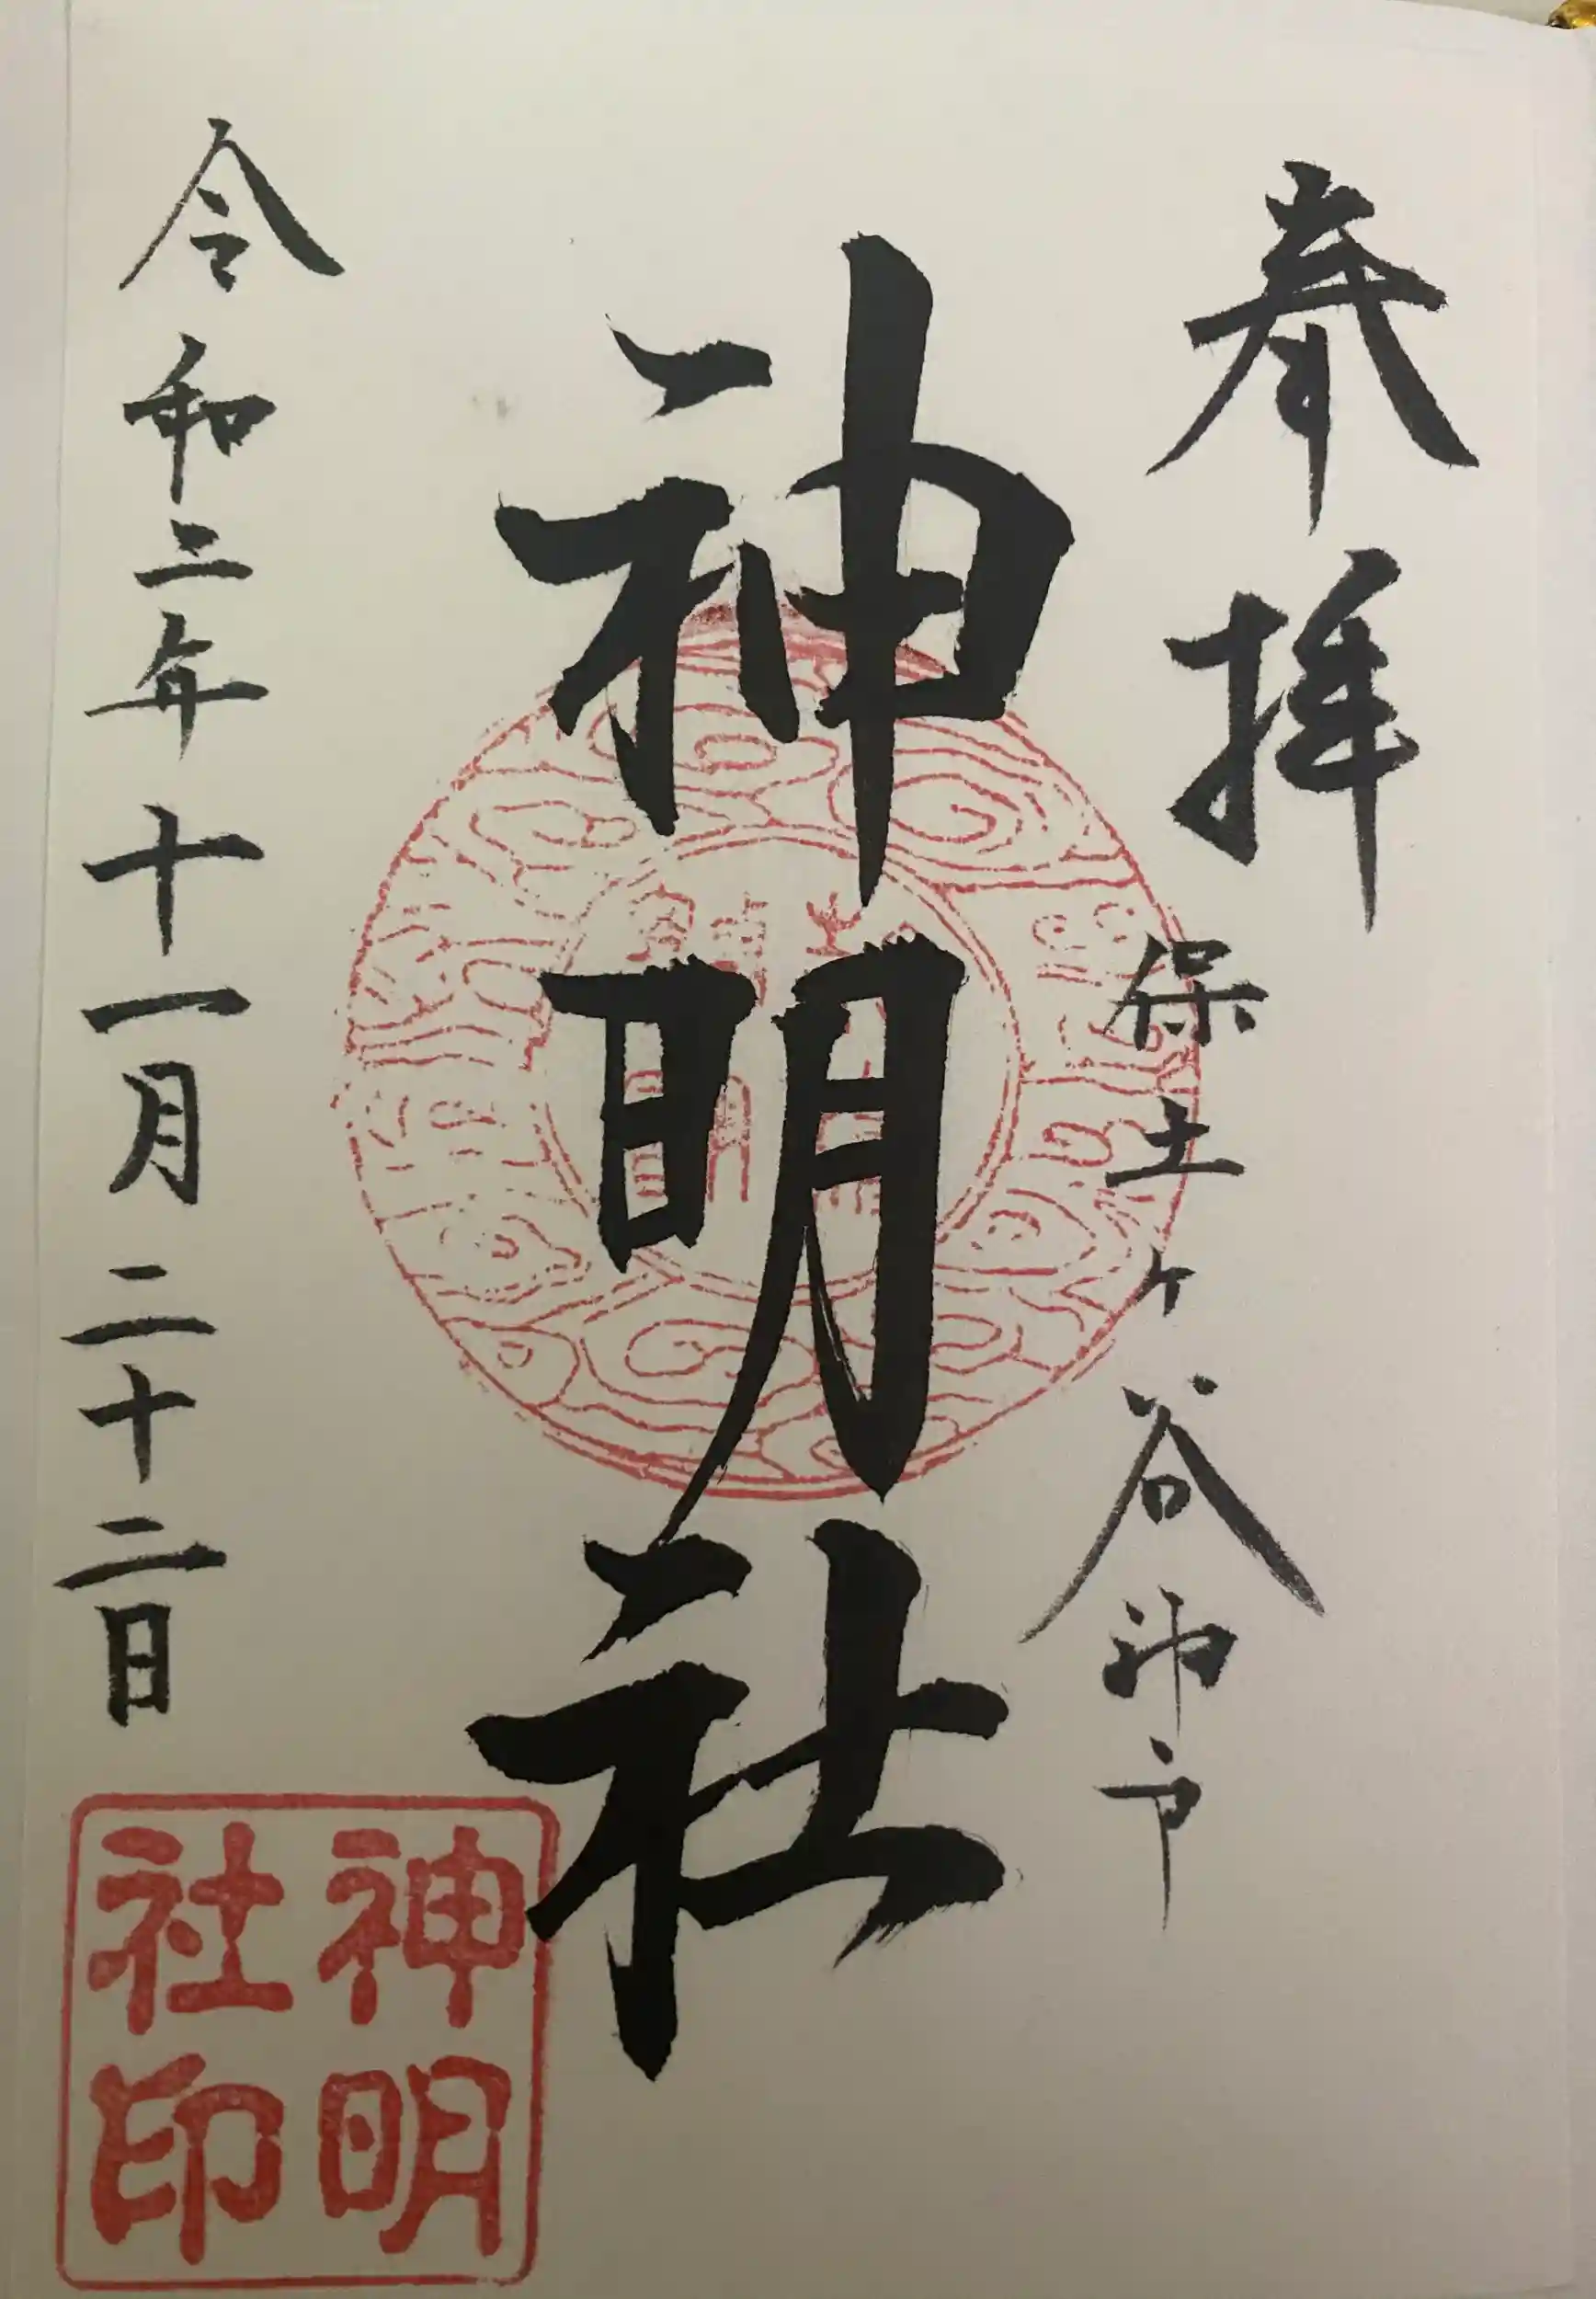 奉拝
保土ヶ谷神戸
神明社
令和二年十一月二十二日
神明
社印